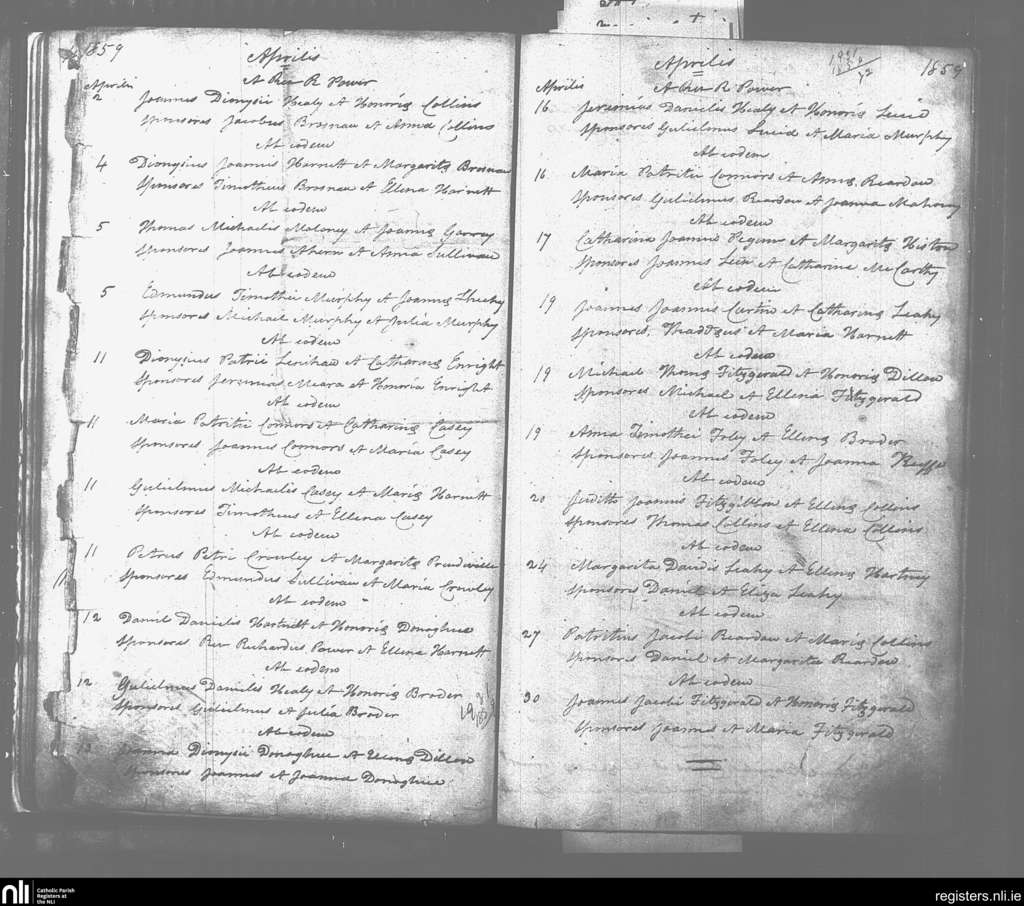 1859
Aprilis
A Rev R Power
Aprilis
2 Joannes Dionysii Healy et Honoriæ Collins
Sponsores Jacobus Brosnan et Anna Collins
Ab eodem
4 Dionysius Joannis Harnett et Margaritæ Brosnan
Sponsores Timotheus Brosnan et Ellena Harnett
Ab eodem
5 Thomas Michaelis Maloney et Joannæ
Sponsores Joannes Ahern et Anna Sullivan
Ab eodem
5 Edmundus Timothei Murphy et Joannæ Sheehy
Sponsores Michael Murphy et Julia Murphy
Ab eodem
11 Dionysius Patricii Lenihan et Catharinæ Enright
Sponsores Jeremias Meara et Honoria Enright
Ab eodem
11 Maria Patritii Connors et Catharinæ Casey
Sponsores Joannes Connors et Maria Casey
Ab eodem
11 Gulielmus Michaelis Casey et Mariæ Harnett
Sponsores Timotheus et Ellena Casey
Ab eodem
11 Petrus Petri Crowley et Margaritæ Prendiville
Sponsores Edmundus Sullivan et Maria Crowley
Ab eodem
12 Daniel Danielis Hartnett et Honoriæ Donoghue
Sponsores Rev Richardus Power et Ellena Harnett
Ab eodem
12 Gulielmus Danielis Healy et Honoriæ Broder
Sponsores Gulielmus et Julia Broder
Ab eodem
13 Joanna Dionysii Donoghue et Ellenæ Dillon
Sponsores Joannes et Joanna Donoghue
Aprilis
1859
A Rev R Power
Aprilis
16 Jeremias Danielis Healy et Honoriæ Lucid
Sponsores Gulielmus Lucid et Maria Murphy
Ab eodem
16 Maria Patritii Connors et Annæ Reardon
Sponsores Gulielmus Reardon et Joanna Mahony
Ab eodem
17 Catharina Joannis Regan et Margaritæ Histon
Sponsores Joannes et Catharina McCarthy
Ab eodem
19 Joannes Joannis Curtin et Catharinæ Leahy
Sponsores Thaddæus et Maria Harnett
Ab eodem
19 Michael Thomæ Fitzgerald et Honoriæ Dillon
Sponsores Michael et Ellena Fitzgerald
Ab eodem
19 Anna Timothei Foley et Ellenæ Broder
Sponsores Joannes Foley et Joanna Keeffe
Ab eodem
20 Judith Joannis Fitzgibbon et Ellenæ Collins
Sponsores Thomas Collins et Ellena Collins
Ab eodem
24 Margarita Davidis Leahy et Ellenæ Hartney
Sponsores Daniel et Eliza Leahy
Ab eodem
27 Patritius Jacobi Reardon et Mariæ Collins
Sponsores Daniel et Margarita Reardon
Ab eodem
30 Joannes Jacobi Fitzgerald et Honoriæ Fitzgerald
Sponsores Joannes et Maria Fitzgerald
nli
Catholic Parish
Registers at
the NLI
registers.nli.ie